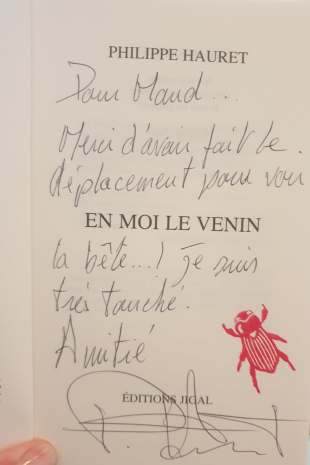 PHILIPPE HAURET
Pour Maud...
Merci d'avoir fait le
déplacement pour voir
EN MOI LE VENIN
la bête...! Je suis
très touché.
Amitié
ÉDITIONS JIGAL